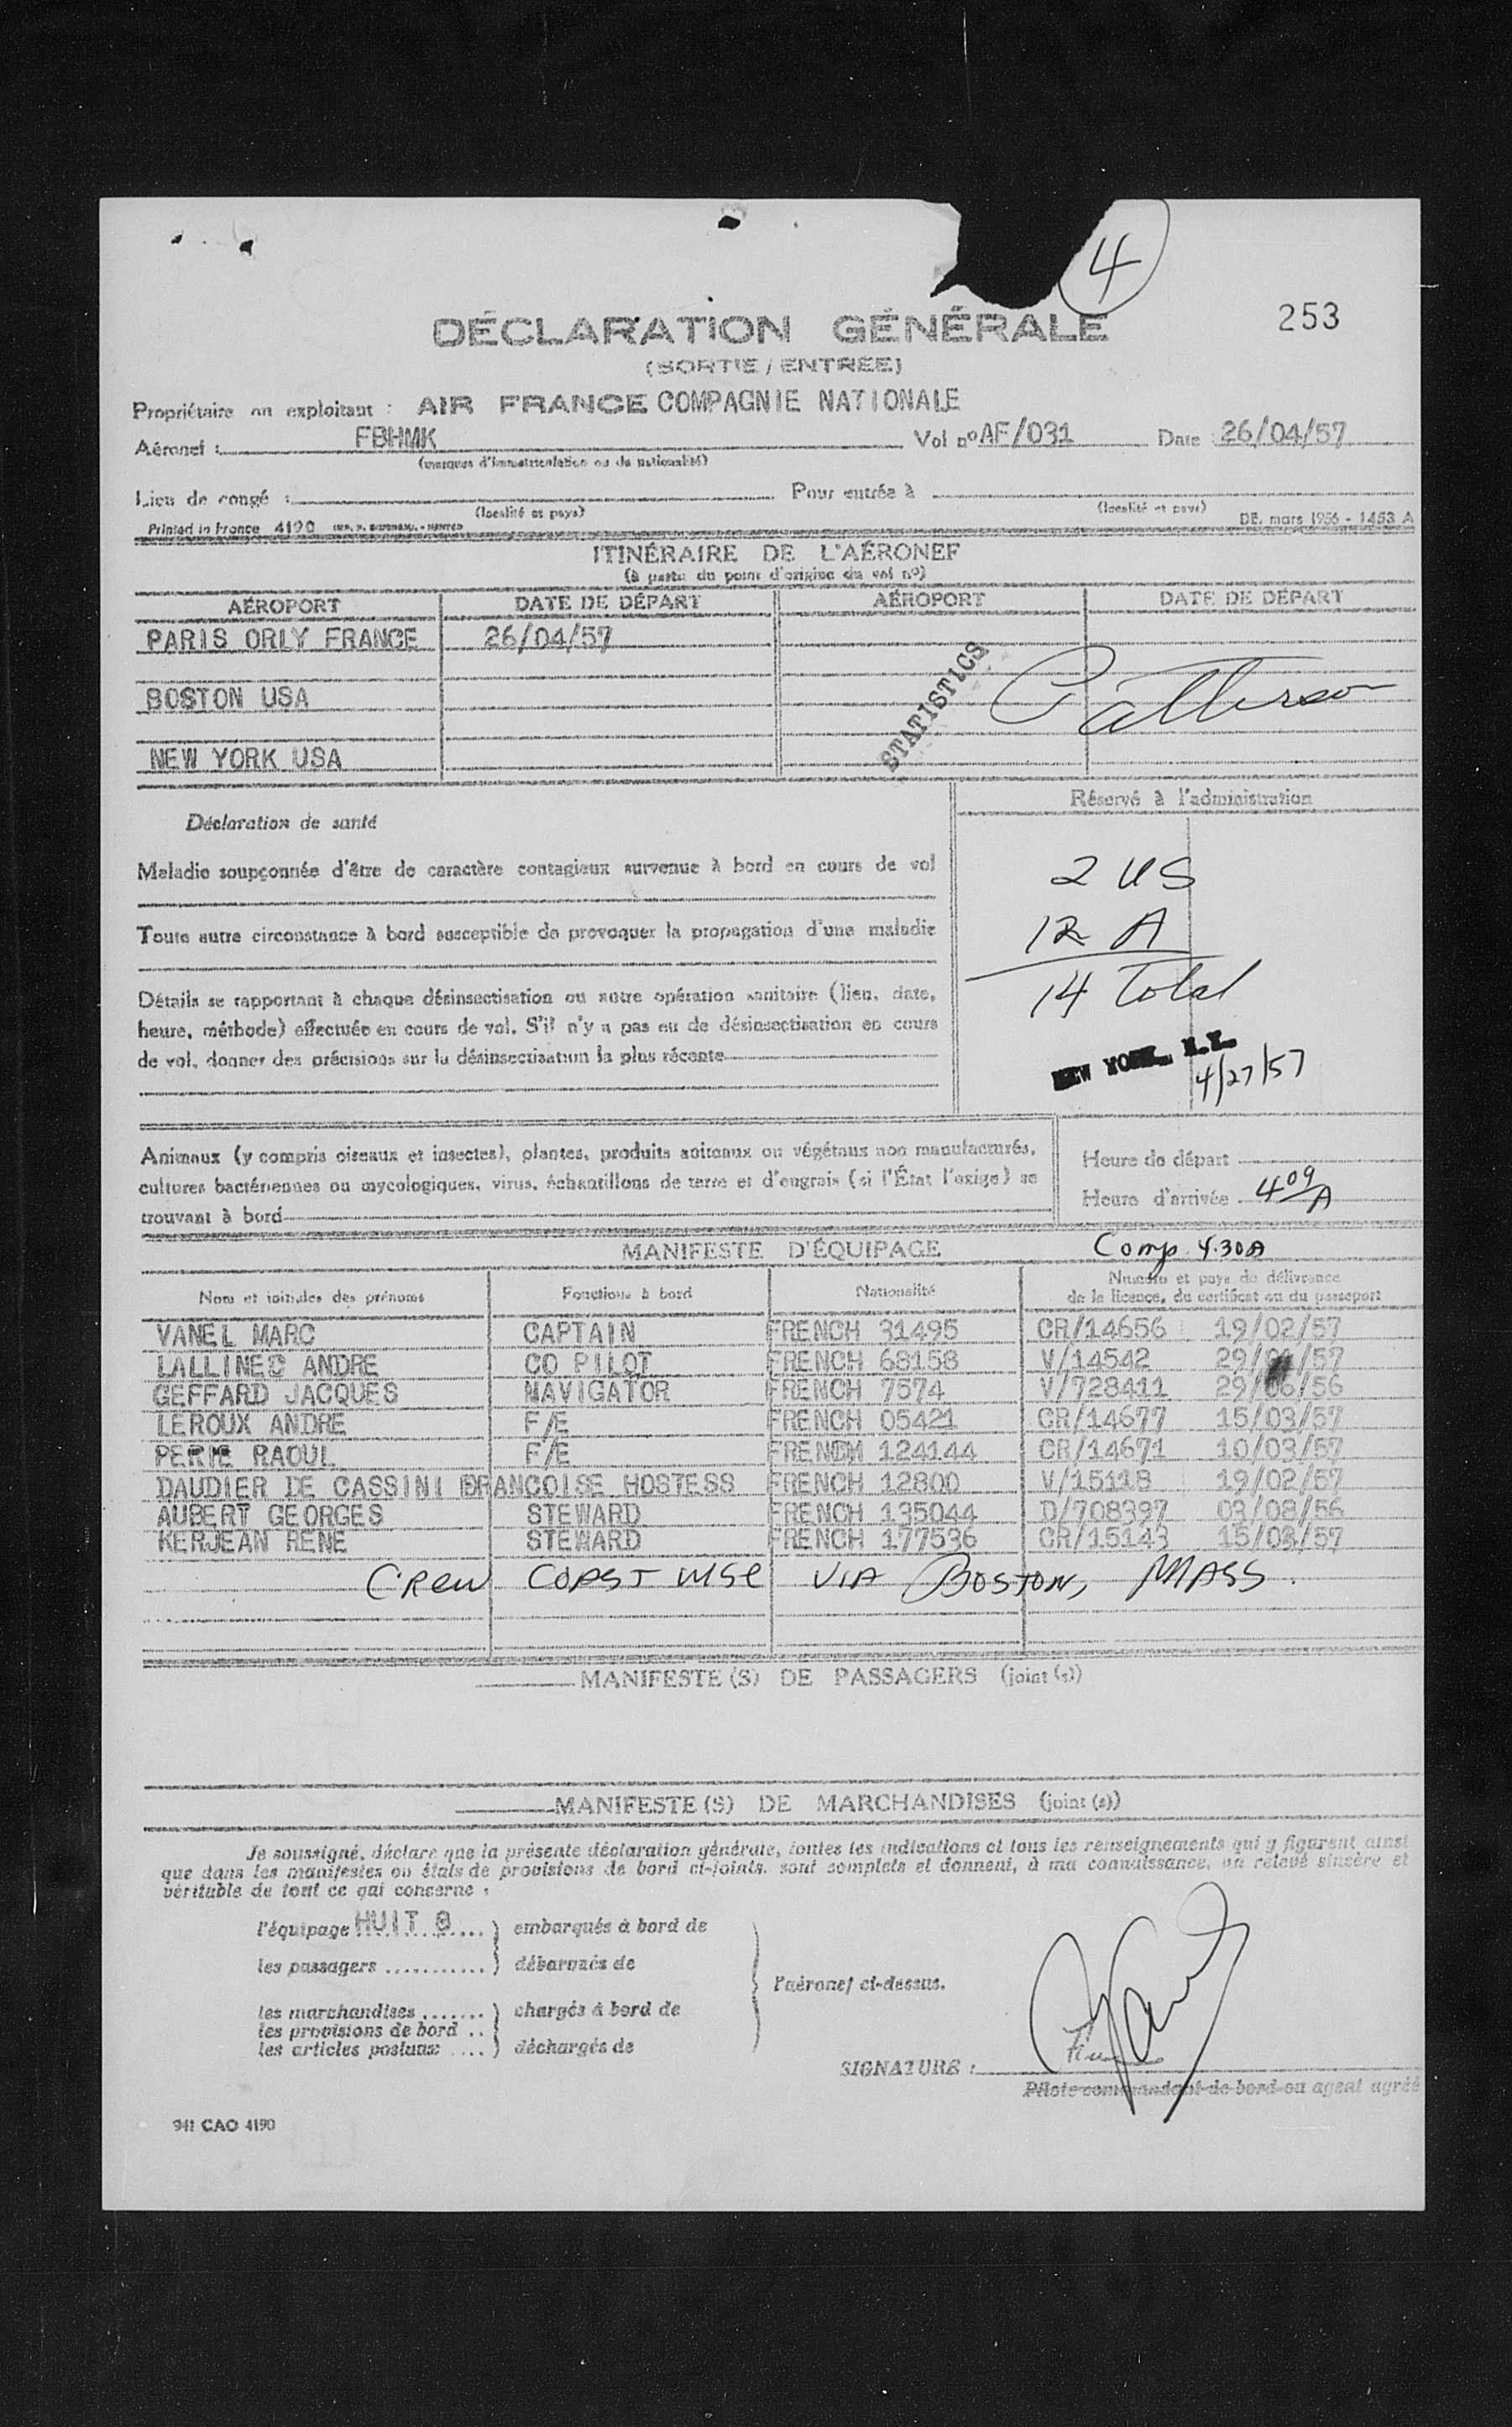 4
253
DÉCLARATION GÉNÉRALE
(SORTIE / ENTRÉE)
Propriétaire ou exploitant : AIR FRANCE COMPAGNIE NATIONALE
Aéronef : FBHMK Vol nº AF/031 Date : 26/04/57
(marques d'immatriculation ou de nationalité)
Lieu de congé : Pour entrée à
(localité et pays) (localité et pays)
Printed in France 4190 DE. mars 1956 - 1453 A
ITINÉRAIRE DE L'AÉRONEF
(à partir du point d'origine du vol nº)
AÉROPORT DATE DE DÉPART AÉROPORT DATE DE DÉPART
PARIS ORLY FRANCE 26/04/57
STATISTICS
Patterson
BOSTON USA
NEW YORK USA
Réservé à l'administration
Déclaration de santé
Maladie soupçonnée d'être de caractère contagieux survenue à bord en cours de vol
2 US
Toute autre circonstance à bord susceptible de provoquer la propagation d'une maladie
12 A
14 Total
Détails se rapportant à chaque désinsectisation ou autre opération sanitaire (lieu, date,
heure, méthode) effectuée en cours de vol. S'il n'y a pas eu de désinsectisation en cours
de vol, donner des précisions sur la désinsectisation la plus récente
NEW YORK, N.Y.
4/27/57
Animaux (y compris oiseaux et insectes), plantes, produits animaux ou végétaux non manufacturés,
cultures bactériennes ou mycologiques, virus, échantillons de terre et d'engrais (si l'État l'exige) se
trouvant à bord
Heure de départ
Heure d'arrivée 4 09 A
MANIFESTE D'ÉQUIPAGE Comp 4.30A
Nom et initiales des prénoms Fonctions à bord Nationalité Numéro et pays de délivrance
de la licence, du certificat ou du passeport
VANEL MARC CAPTAIN FRENCH 31495 CR/14656 19/02/57
LALLINEC ANDRE CO PILOT FRENCH 68158 V/14542 29/ /57
GEFFARD JACQUES NAVIGATOR FRENCH 7574 V/728411 29/06/56
LEROUX ANDRE F/E FRENCH 05421 CR/14677 15/03/57
RAOUL F/E FRENCH 124144 CR/14671 10/03/57
DAUDIER DE CASSINI FRANCOISE HOSTESS FRENCH 12800 V/15118 19/02/57
AUBERT GEORGES STEWARD FRENCH 135044 D/708397 03/08/56
KERJEAN RENE STEWARD FRENCH 177536 CR/15143 15/03/57
CREW COASTWISE VIA BOSTON, MASS.
MANIFESTE(S) DE PASSAGERS (joint (s))
MANIFESTE(S) DE MARCHANDISES (joint (s))
Je soussigné, déclare que la présente déclaration générale, toutes les indications et tous les renseignements qui y figurent ainsi
que dans les manifestes ou états de provisions de bord ci-joints, sont complets et donnent, à ma connaissance, un relevé sincère et
véritable de tout ce qui concerne :
l'équipage HUIT 8 ....) embarqués à bord de
les passagers ...........) débarqués de
l'aéronef ci-dessus.
les marchandises .......) chargés à bord de
les provisions de bord ..
les articles postaux ....) déchargés de
SIGNATURE :
Pilote commandant de bord ou agent agréé
941 CAO 4190